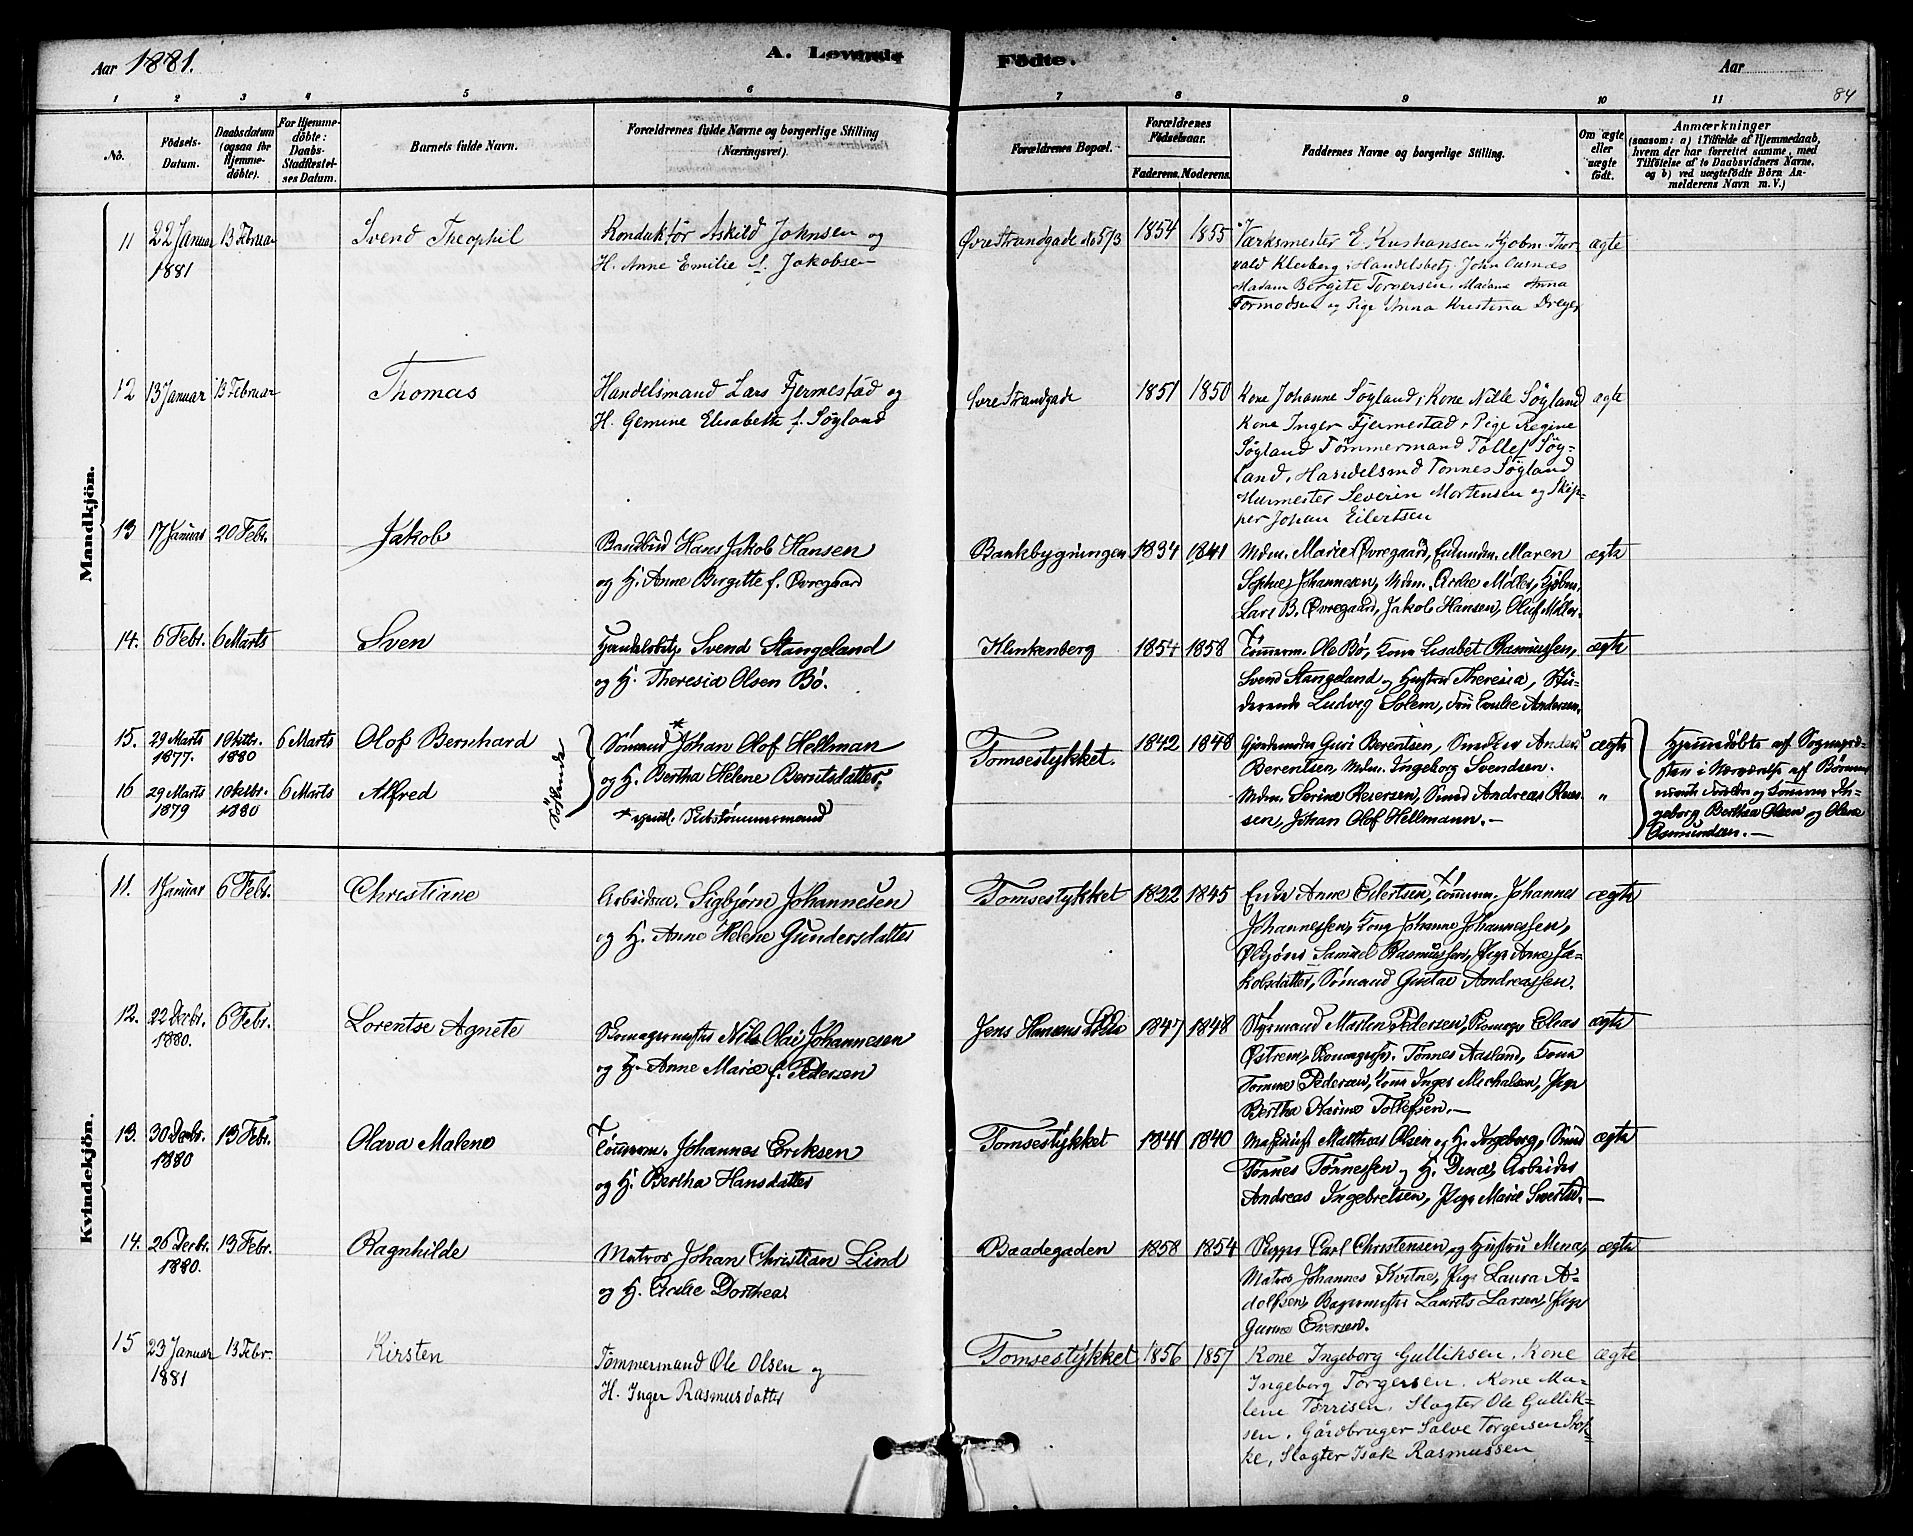 Aar 1881.
A. Levende Födte.
Aar
84
1 2 3 4 5 6 7 8 9 10 11
No.
Födsels-Datum.
Daabsdatum (ogsaa for Hjemme-döbte).
For Hjemme-döbte: Daabs-Stadfæstel-ses Datum.
Barnets fulde Navn.
Forældrenes fulde Navne og borgerlige Stilling (Næringsvei).
Forældrenes Bopæl.
Forældrenes Födselsaar.
Faderens. Moderens.
Faddernes Navne og borgerlige Stilling.
Om ægte eller uægte födt.
Anmærkninger
(saasom: a) i Tilfælde af Hjemmedaab, hvem der har forrettet samme, med Tilföielse af to Daabsvidners Navne, og b) ved uægtefödte Börn Anmelderens Navn m. V.)
Mandkjön.
11 22 Januar 13 Februar Svend Theophil Konduktør Askild Johnsen og Øvre Strandgade No 573 1854 1855 Værksmester E. Kushansen, Kjøbm. Thor- ægte
1881 H. Anne Emilie f. Jakobsen vald Kleiberg, Handelsbetj. John Aarnæs
Madam Bergite Torgersen, Madame Anna
Tormodsen og Pige Anna Kristina Dreyer
12 13 Januar 13 Februar Thomas Handelsmand Lars Fjermestad og Øvre Strandgade 1851 1850 Kone Johanne Søyland, Kone Nille Søyland ægte
H. Gemine Elisabeth f. Søyland Kone Inger Fjermestad, Pige Regine
Søyland Tømmermand Tollef Søy-
land, Handelsmd Tønnes Søyland
Murmester Severin Mortensen og Skip-
per Johan Eilertsen
13 17 Januar 20 Febr. Jakob Bankbud Hans Jakob Hansen Bankbygningen 1834 1841 Mdm. Marie Øvregaard, Mdm. Maren ægte
og H. Anne Birgitte f. Øvregaard Sophie Johannesen, Mdm. Møller, Kjøbm.
Lars B. Øvregaard, Jakob Hansen, Oluf Møller.
14. 6 Febr. 6 Marts Sven Handelsbetj. Svend Stangeland Klinkenberg 1854 1858 Tømmerm. Ole Bø, Kone Lisabet Rasmussen, ægte
og H. Theresia Olsen Bø. Svend Stangeland og Hustru Theresia, Stu-
derende Ludvig Solem, Emilie Andersen.
15. 29 Marts 1 Oktbr. 6 Marts Olof Bernhard Sømand * Johan Olof Hellman Tomsestykket. 1842 1848 Guri Berentsen, Anders ægte
1877. 1880 Søskende og H. Bertha Helene Berntsdatter. Berentsen, Mdm. Ingeborg Svendsen.
16 29 Marts 1 Oktbr. 6 Marts Alfred Mdm. Serine Resersen, Smed Andreas "
1879 1880 * egentl. Skibstømmermand sen, Johan Olof Hellmann.—
Hjemmedøbte af Sognepræ-
sten i Nærværelse af
og
geborg Bertha Olsen og Olene
Osmundsen.—
Kvindekjön.
11. 1 Januar 6 Febr. Christiane Arbeidsm. Sigbjørn Johannesen Tomsestykket 1822 1845 Enke Anne Eilertsen, Tømmerm. Johannes ægte
og H. Anne Helene Gundersdatter Johannessen, Kone Johanne Johannessen,
Samuel Rasmussen, Pige Anne Ja-
kobsdatter, Sømand Gustav Andreassen.
12. 22 Decbr. 6 Febr. Lorentse Agnete Skomagermester Nils Olai Johannesen Jens Hansens 1847 1848 Styrmand Marten Pedersen, Skomager Elias ægte
1880. og H. Anne Marie f. Pedersen Østrem, Tønnes Aasland, Kone
Tomine Pedersen, Kone Inger Michalsen, Pige
Bertha Karine Tollefsen.—
13. 30 Decbr. 13 Febr. Olava Malene Tømmerm. Johannes Eriksen Tomsestykket 1841 1840 Maskinist Matthias Olsen og H. Ingeborg, Smed ægte
1880 og H. Bertha Hansdatter Tønnes Tønnessen og H. Dina, Arbeider
Andreas Ingebretsen, Pige Marie
14. 26 Decbr. 13 Febr. Ragnhilde Matros Johan Christian Lind Baadegaden 1858 1854 Skipper Carl Christensen og Hustru Mina, ægte
1880. og H. Cecilie Dorthea Matros Johannes Kvitne, Pige Laura A-
dolfsen, Bagermester Laurets Larsen, Pige
Gurine Eversen.
15 23 Januar 13 Febr. Kirsten Tømmermand Ole Olsen og Tomsestykket 1856 1857 Kone Ingeborg Gulliksen, Kone ægte
1881 H. Inger Rasmusdatter Ingeborg Torgersen, Kone Ma-
lene Tørrisen, Slagter Ole Gullik-
sen, Gårdbruger Salve Torgersen Stok-
ke, Slagter Isak Rasmussen